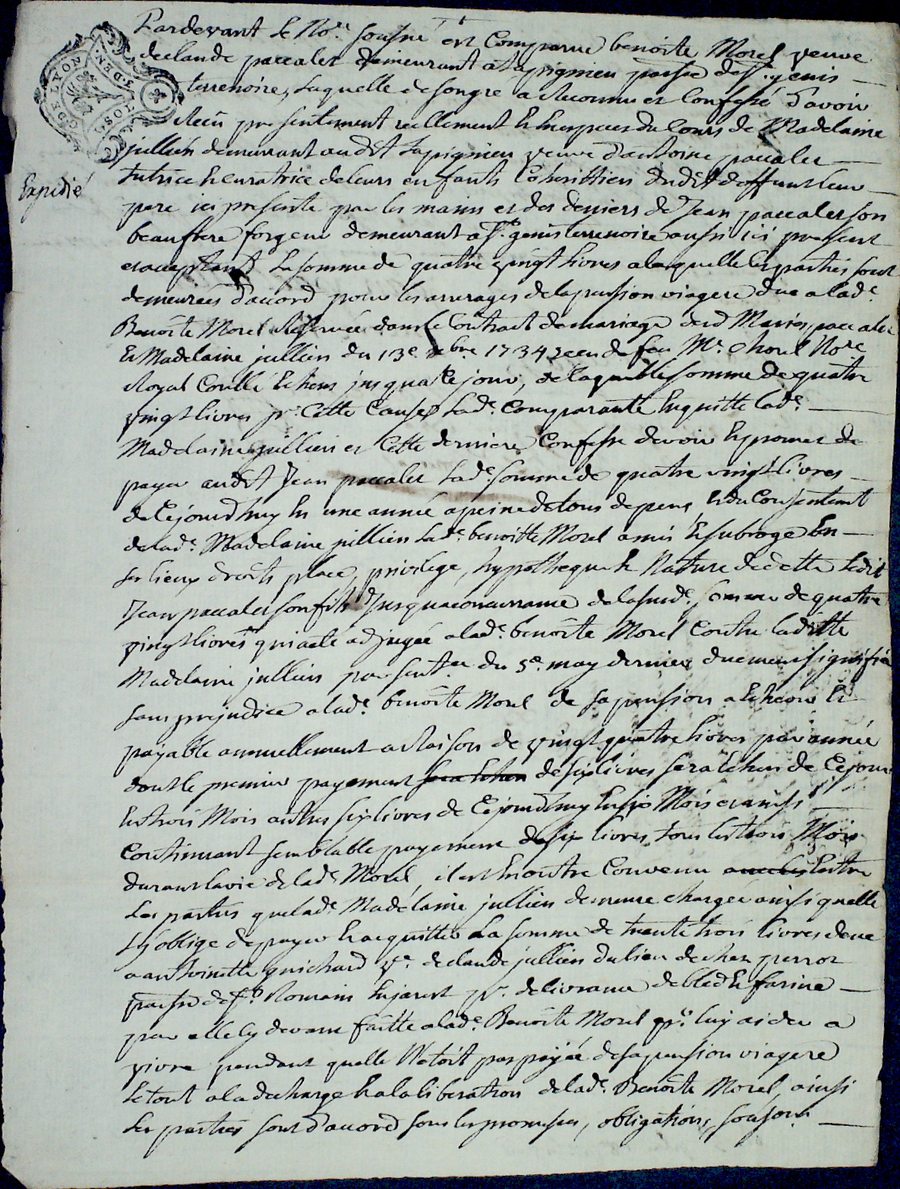 Pardevant le No.re sousné est Comparue benoiste Morel veuve
de claude paccalet demeurant a Lapignieu parsse de St. genis
terrenoire, Laquelle de son gre a Reconnu et Confessé d'avoir
Receu presentement reellement et en especes du Cours de Madelaine
jullien demeurant audit Lapignieu veuve d'antoine paccalet
tutrice et curatrice de leurs enfants et heritiers dudit deffunt leur
Expedié
pere ici presente par les mains et des deniers de Jean paccalet son
beaufrere forgeur demeurant a St. genis terrenoire aussi ici present
et acceptant La somme de quatre vingt livres a laquelle les parties sont
demeurées d'accord pour les arrerages de la pension viagere due a lad.e
Benoiste Morel Reservée dans le Contrat de mariage dud Maries paccalet
et Madelaine jullien du 13e 1734 receu de feu Me. Morel No.re
Royal et echeus jusqua ce jour, de laquelle somme de quatre
vingt livres pr. Cette Cause Lad.e Comparante en quitte lad.e
Madelaine jullien et Cette derniere Confesse devoir et promet de
payer audit Jean paccalet Lad.e somme de quatre vingt livres
de Cejourdhuy en une année a peine de tous depens, et du Consentement
de lad.e Madelaine jullien Lad.e benoitte Morel a mis et subrogé en
ses lieux droits place, privilege, hypotheque et Nature de dette Ledit
Jean paccalet son fils Jusqua concurrance de la susd.e somme de quatre
vingt livres qui a eté adjugée a lad.e benoiste Morel Contre ladite
Madelaine jullien par sent.ce du 5e. may dernier duement signifiée
sans prejudice a lad.e benoiste Morel de sa pension a echeoir et
payable annuellement a Raison de vingt quatre livres par année
dont le premier payement de six livres sera echeu de Cejour
en trois Mois autres six livres de Cejourdhuy en six Mois et ainsi
Continuant semblable payement de six livres tous les trois Mois
durant la vie de lad.e Morel il est en outre Convenu entre
Les parties que lad.e Madelaine jullien demeure chargée ainsi quelle
s'y oblige de payer et acquitter La somme de trente trois livres deue
a antoinette guichard ve. de claude jullien du lieu de chez perrot
parsse de St. Romain en jarest pr. delivrance de bled et farine
par elle cy devant faitte a lad.e Benoiste Morel pr. luy aider a
vivre pendant quelle N'etoit pas payée de sa pension viagere
Le tout a la decharge et a la liberation de lad.e Benoiste Morel, ainsi
Les parties sont d'accord sous les promesses, obligations, soumons.